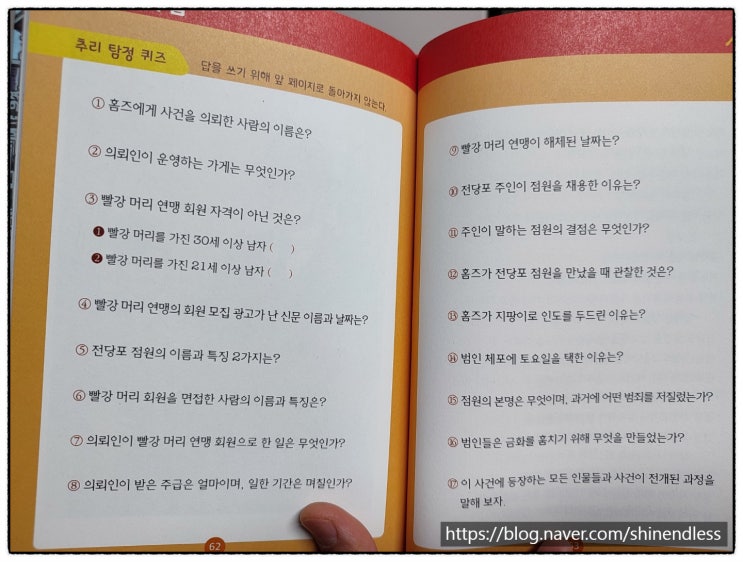 추리 탐정 퀴즈
답을 쓰기 위해 앞 페이지로 돌아가지 않는다.
① 홈즈에게 사건을 의뢰한 사람의 이름은?
② 의뢰인이 운영하는 가게는 무엇인가?
③ 빨강 머리 연맹 회원 자격이 아닌 것은?
❶ 빨강 머리를 가진 30세 이상 남자 (    )
❷ 빨강 머리를 가진 21세 이상 남자 (    )
④ 빨강 머리 연맹의 회원 모집 광고가 난 신문 이름과 날짜는?
⑤ 전당포 점원의 이름과 특징 2가지는?
⑥ 빨강 머리 회원을 면접한 사람의 이름과 특징은?
⑦ 의뢰인이 빨강 머리 연맹 회원으로 한 일은 무엇인가?
⑧ 의뢰인이 받은 주급은 얼마이며, 일한 기간은 며칠인가?
62
⑨ 빨강 머리 연맹이 해체된 날짜는?
⑩ 전당포 주인이 점원을 채용한 이유는?
⑪ 주인이 말하는 점원의 결점은 무엇인가?
⑫ 홈즈가 전당포 점원을 만났을 때 관찰한 것은?
⑬ 홈즈가 지팡이로 인도를 두드린 이유는?
⑭ 범인 체포에 토요일을 택한 이유는?
⑮ 점원의 본명은 무엇이며, 과거에 어떤 범죄를 저질렀는가?
⑯ 범인들은 금화를 훔치기 위해 무엇을 만들었는가?
⑰ 이 사건에 등장하는 모든 인물들과 사건이 전개된 과정을
말해 보자.
https://blog.naver.com/shinendless